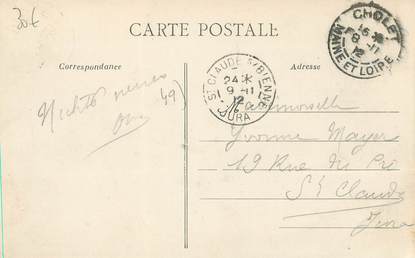 30€
CARTE POSTALE
Correspondance
Adresse
CHOLET
15 *
8 -11
12
MAINE ET LOIRE
ST CLAUDE S/BIENNE
24 *
9 -11
12
JURA
49)
Mademoiselle
Yvonne Mayer
19 Rue du Pré
St Claude
Jura